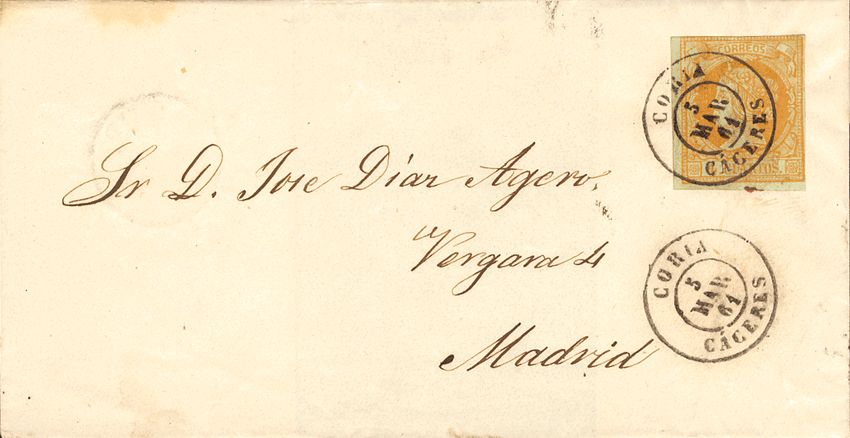 CORREOS
CORIA
5
MAR
61
CÁCERES
Sr D. Jose Díaz Agero,
Vergara 4
Madrid
CORIA
5
MAR
61
CÁCERES